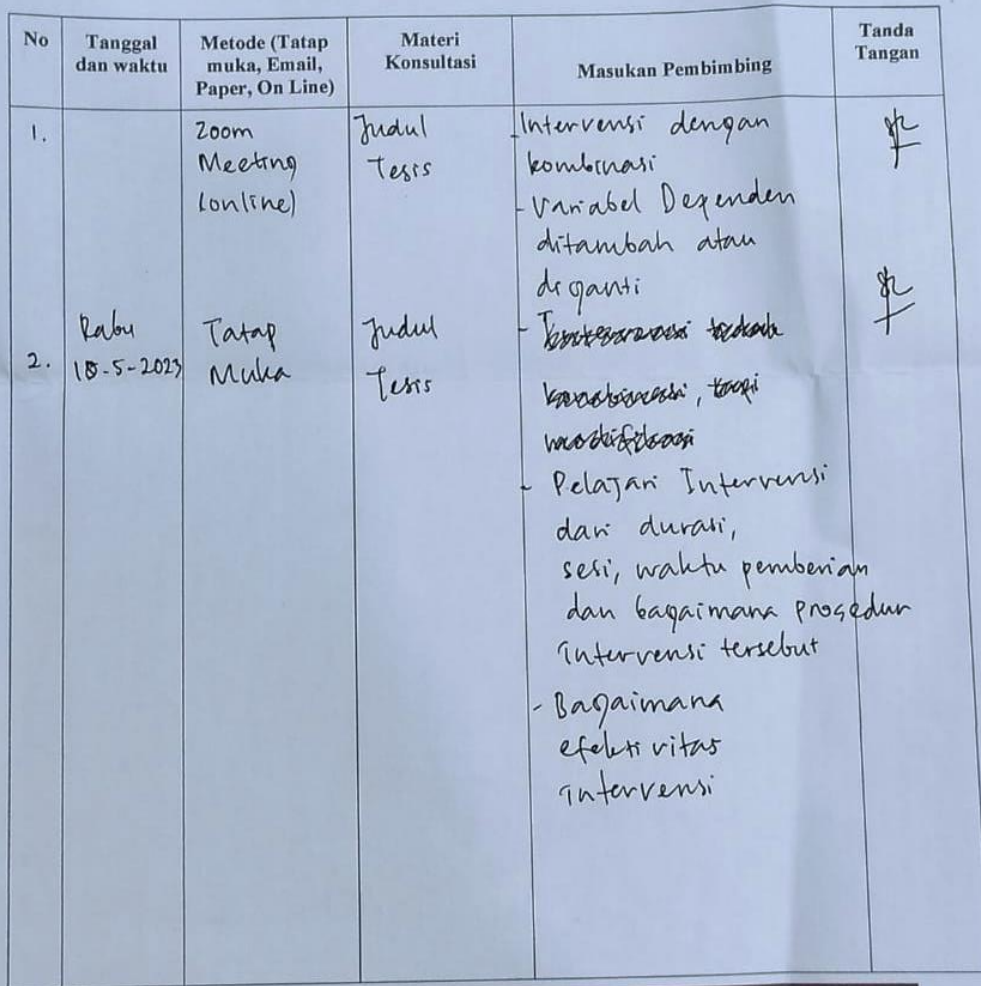 No
Tanggal
dan waktu
Metode (Tatap
muka, Email,
Paper, On Line)
Materi
Konsultasi
Masukan Pembimbing
Tanda
Tangan
1.
Zoom
Meeting
(online)
Judul
Tesis
- Intervensi dengan
kombinasi
- Variabel Dependen
ditambah atau
diganti
2.
Rabu
-5-2023
Tatap
Muka
Judul
Tesis
- Intervensi
kombinasi, tapi
modifikasi
- Pelajari Intervensi
dari durasi,
sesi, waktu pemberian
dan bagaimana prosedur
intervensi tersebut
- Bagaimana
efektivitas
intervensi